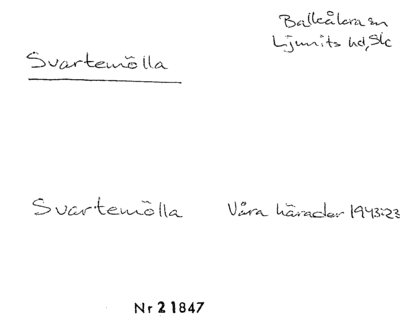 Balkåkra sn
Ljunits hd, Sk
Svartemölla
Svartemölla Våra härader 1943:23
Nr 21847